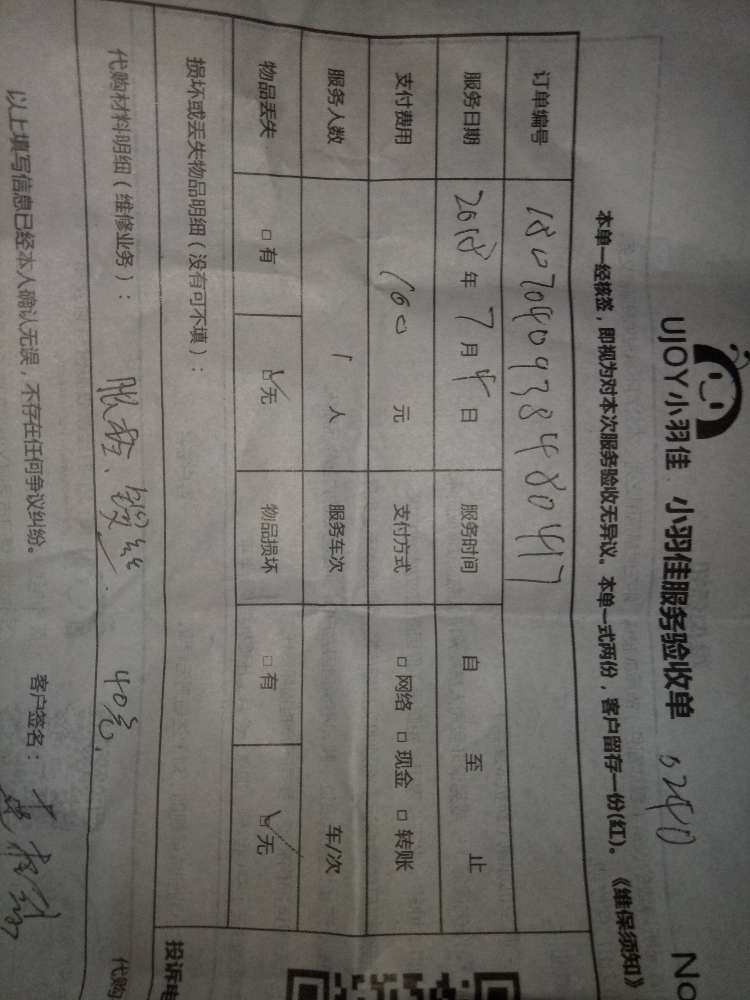 UJOY小羽佳 小羽佳服务验收单 0240 No
本单一经核签，即视为对本次服务验收无异议。本单一式两份，客户留存一份(红)。《维保须知》
订单编号 180704093848047
服务日期 2018年7月4日 服务时间 自 至 止
支付费用 160 元 支付方式 □网络 □现金 □转账
服务人数 1 人 服务车次 车/次
物品丢失 □有 ☑无 物品损坏 □有 ☑无
损坏或丢失物品明细（没有可不填）：
投诉电
代购材料明细（维修业务）： 40元， 代购
以上填写信息已经本人确认无误，不存在任何争议纠纷。 客户签名：